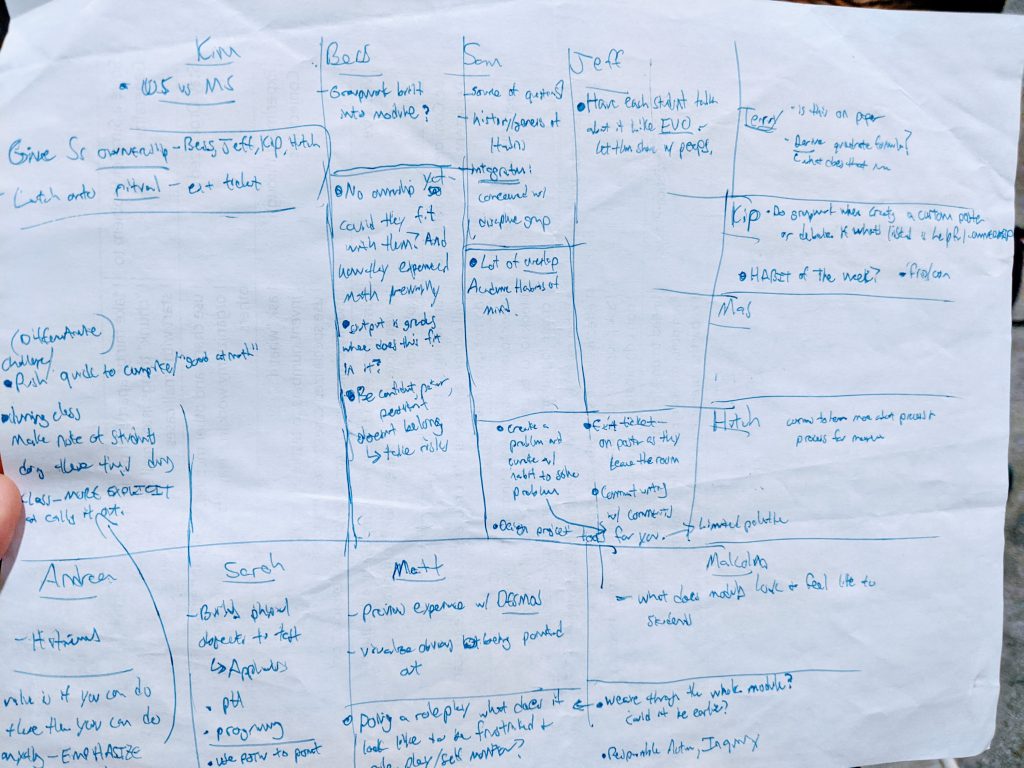 Kim
• 105 vs MS
Give Ss ownership - Becs, Jeff, Kip, Hutch
- Latch onto pitval - exit ticket
(Differentiate)
challenge/
• Push quick to comprise/"good at math"
• during class
Make note of students
doing these they doing
class - MORE EXPLICIT
calls it out.
Becs
- Groupwork built
into module?
• No ownership yet
could they fit
with them? And
how they experienced
math previously
• output is grades
where does this fit
in it?
• Be confident, patient,
persistent
doesn't belong
↳ take risks
Sam
- source of questions?
- history/genesis of
Habits
- Integration:
concerned w/
discipline group
• Lot of overlap
Academic Habits of
mind.
• Create a
problem and
curate w/
habit to solve
problem
• Design project tools for you. → Limited palette
Jeff
• Have each student talk
about it like EVO -
let them share w/ peers.
• Exit ticket -
on poster as they
leave the room
• Comment writing
w/ comments
Terry
- is this on paper
- Derive quadratic formula?
what does that
Kip
• Do groupwork when creating a custom poster
or debates if what's listed is helpful - ownership
• HABIT of the week?
• Pro/con
Mas
Hutch
to learn more about process &
process for
Andrea
- Historians
value is if you can do
these then you can do
anything - EMPHASIZE
Sarah
- Building physical
objects to test
↳ Applying
• pH
• programming
• Use POTW to point
Matt
- Previous experience w/ DESMOS
- visualize obvious not being pointed
out
• Doing a roleplay what does it
look like to be frustrated &
role play/sets
Malcolm
- What does module look & feel like to
students
• weave through the whole module?
Could it be earlier?
• Responsible Action, Inquiry